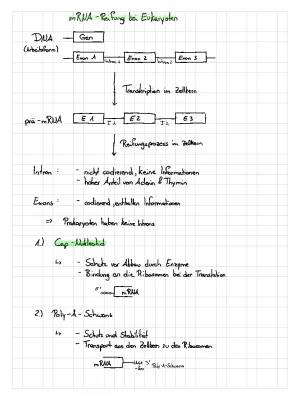 mRNA - Reifung bei Eukaryoten
DNA
Gen
(Arbeitsform)
Exon 1 Intron 1 Exon 2 Intron 2 Exon 3
Transkription im Zellkern
prä-mRNA E 1 I 1 E 2 I 2 E 3
Reifungsprozess im Zellkern
Intron: - nicht codierend, keine Informationen
- hoher Anteil von Adenin & Thymin
Exons: - codierend, enthalten Informationen
=> Prokaryoten haben keine Introns
1.) Cap-Nukleotid
↳ - Schutz vor Abbau durch Enzyme
- Bindung an die Ribosomen bei der Translation
5' mRNA
2.) Poly-A-Schwanz
↳ - Schutz und Stabilität
- Transport aus den Zellkern zu den Ribosomen
mRNA 3' Poly-A-Schwanz